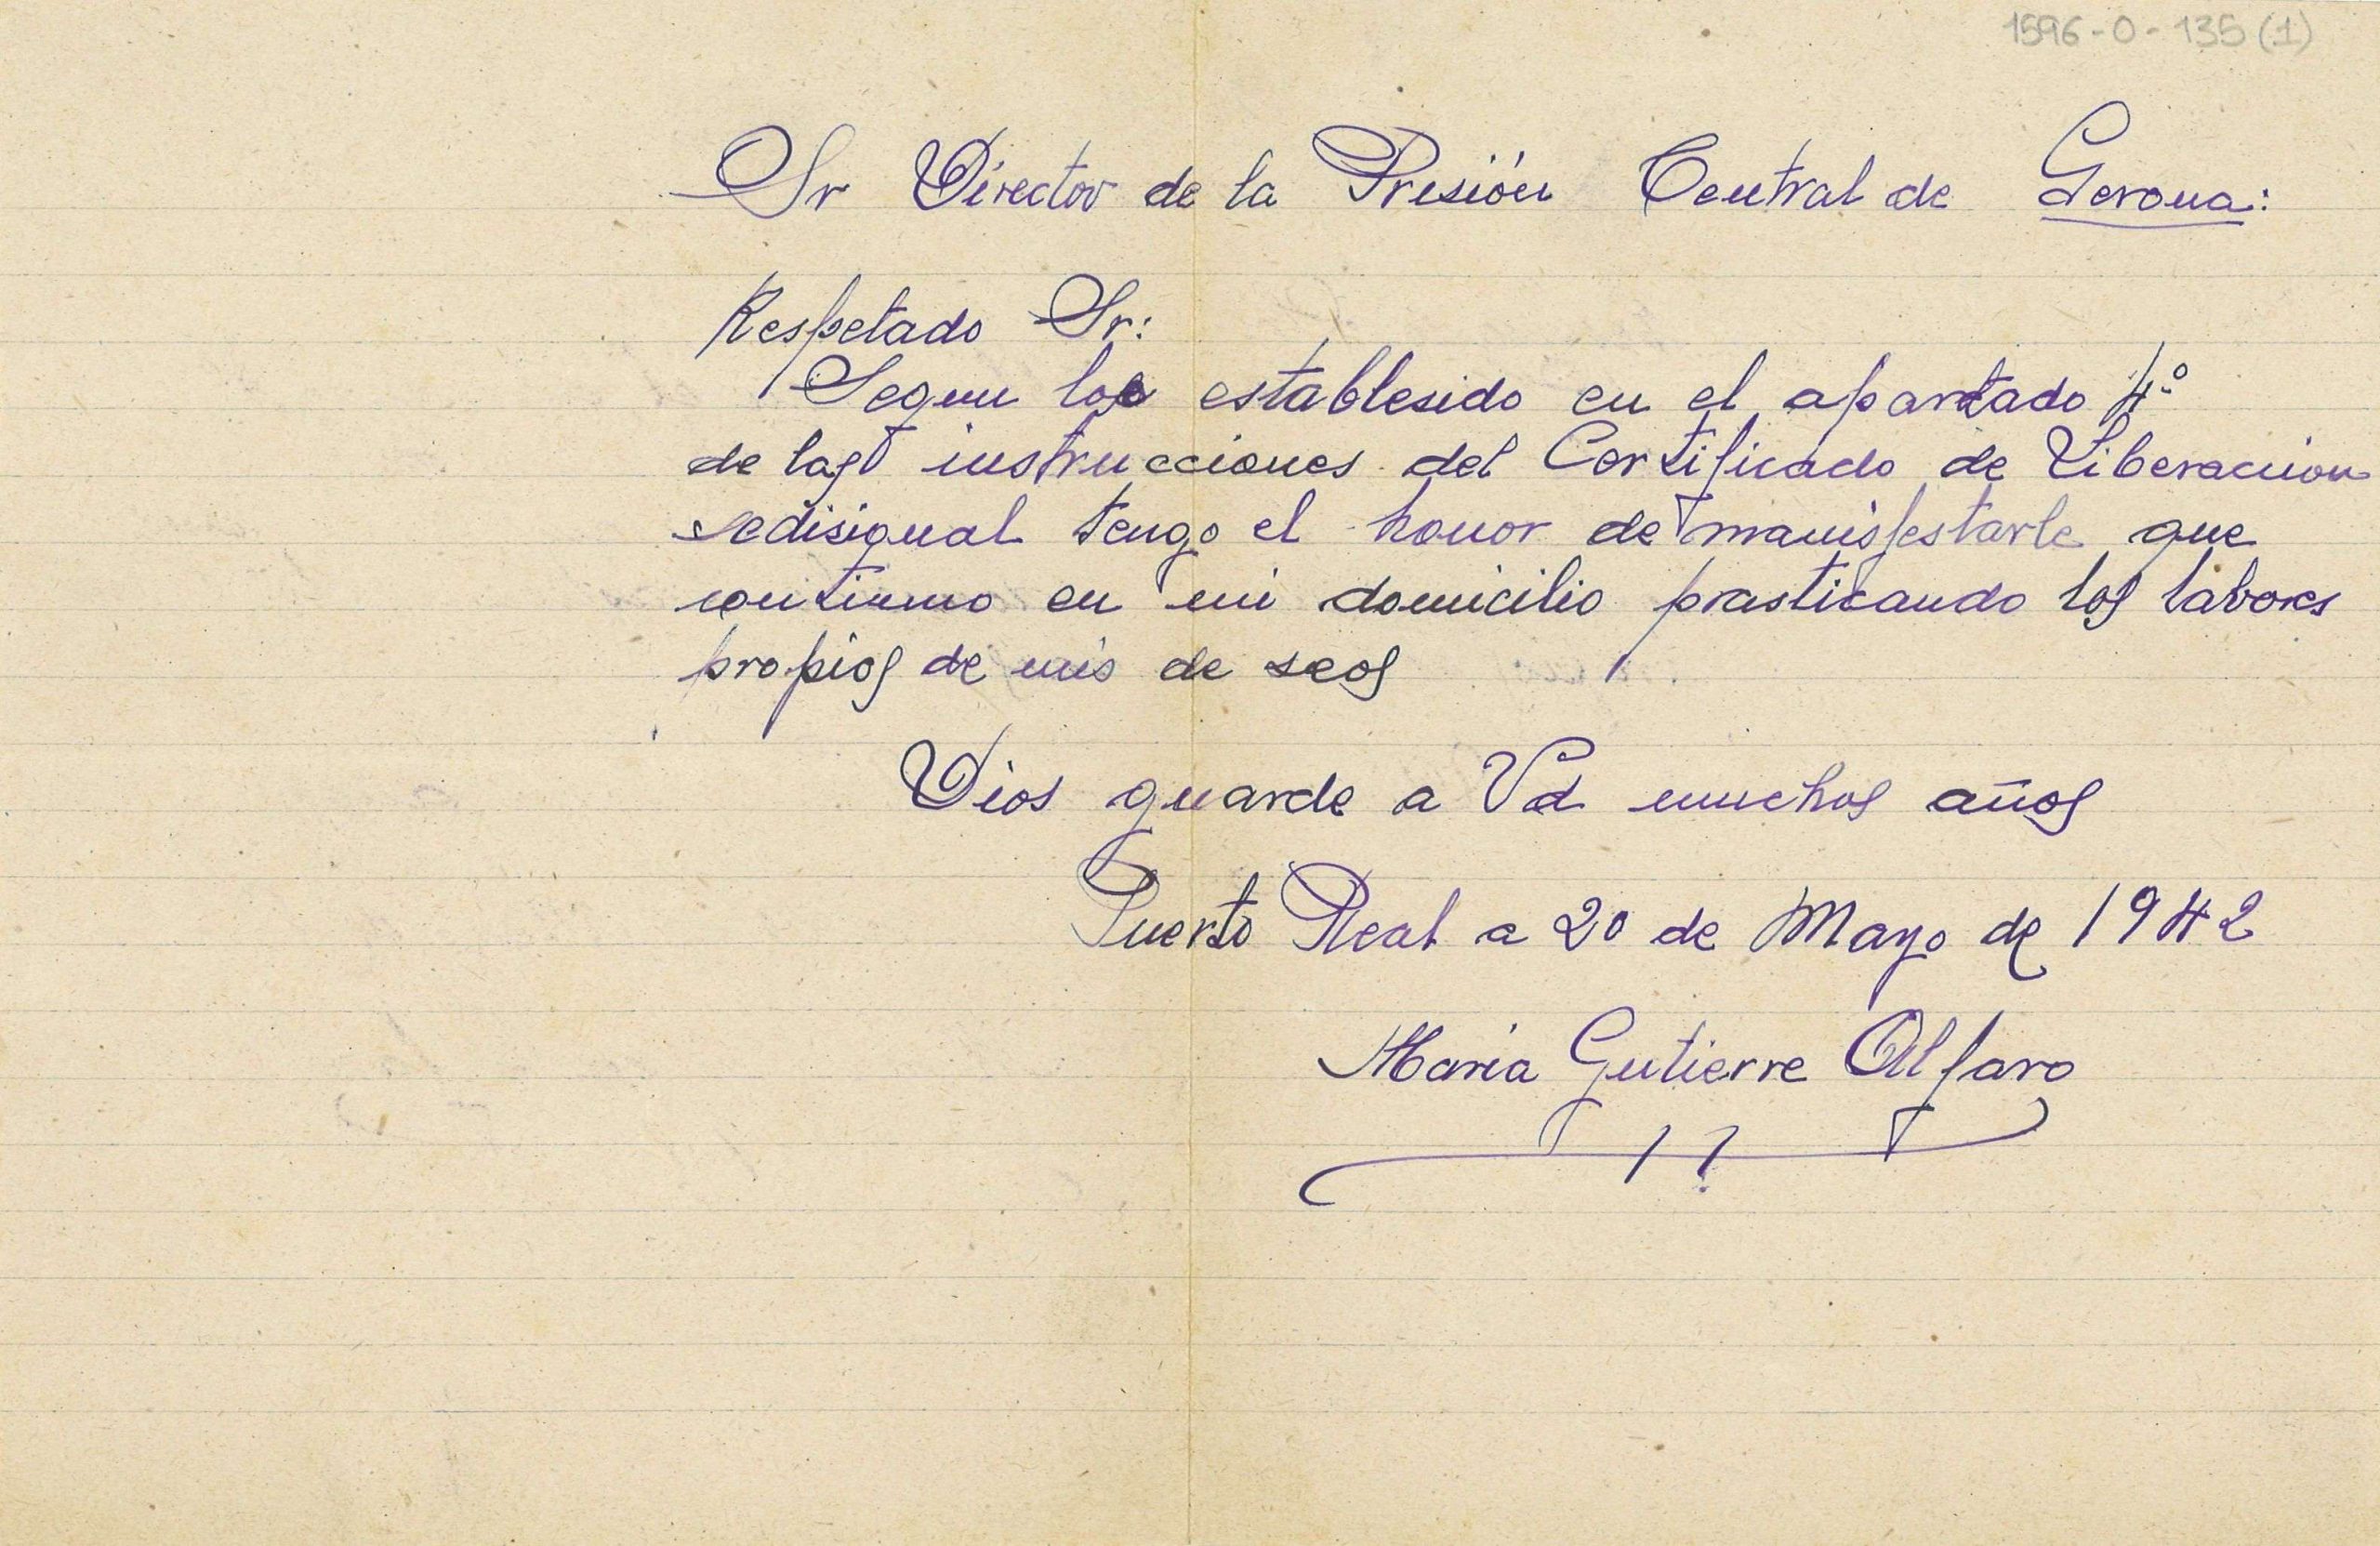 1596-0-135 (1)
Sr Director de la Presión Central de Gerona:
Respetado Sr:
Segun lo establesido en el apartado 4º
de las instrucciones del Certificado de Liberacion
redisiqual tengo el honor de manisfestarle que
continuo en mi domicilio prasticando los labores
propios de mis de seos
Dios guarde a Vd muchos años
Puerto Real a 20 de Mayo de 1942
Maria Gutierre Alfaro